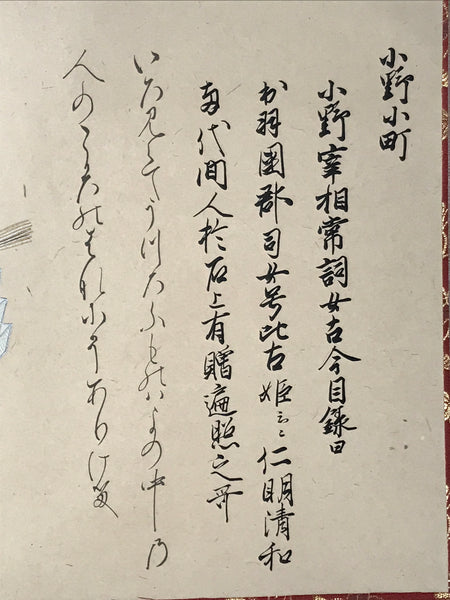 小野小町
小野宰相常詞女古今目録曰
出羽國郡司女号比古姫云々仁明清和
両代間人於石上有贈遍照之哥
いろ見えてうつろふものはよの中の
人のこゝろのはなにそありける